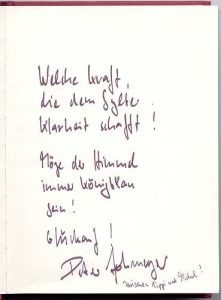 Welche Kraft,
die dem Sylter
Klarheit schafft!
Möge der Himmel
immer königsblau
sein!
Glückauf!
Peter
zwischen Kippe und